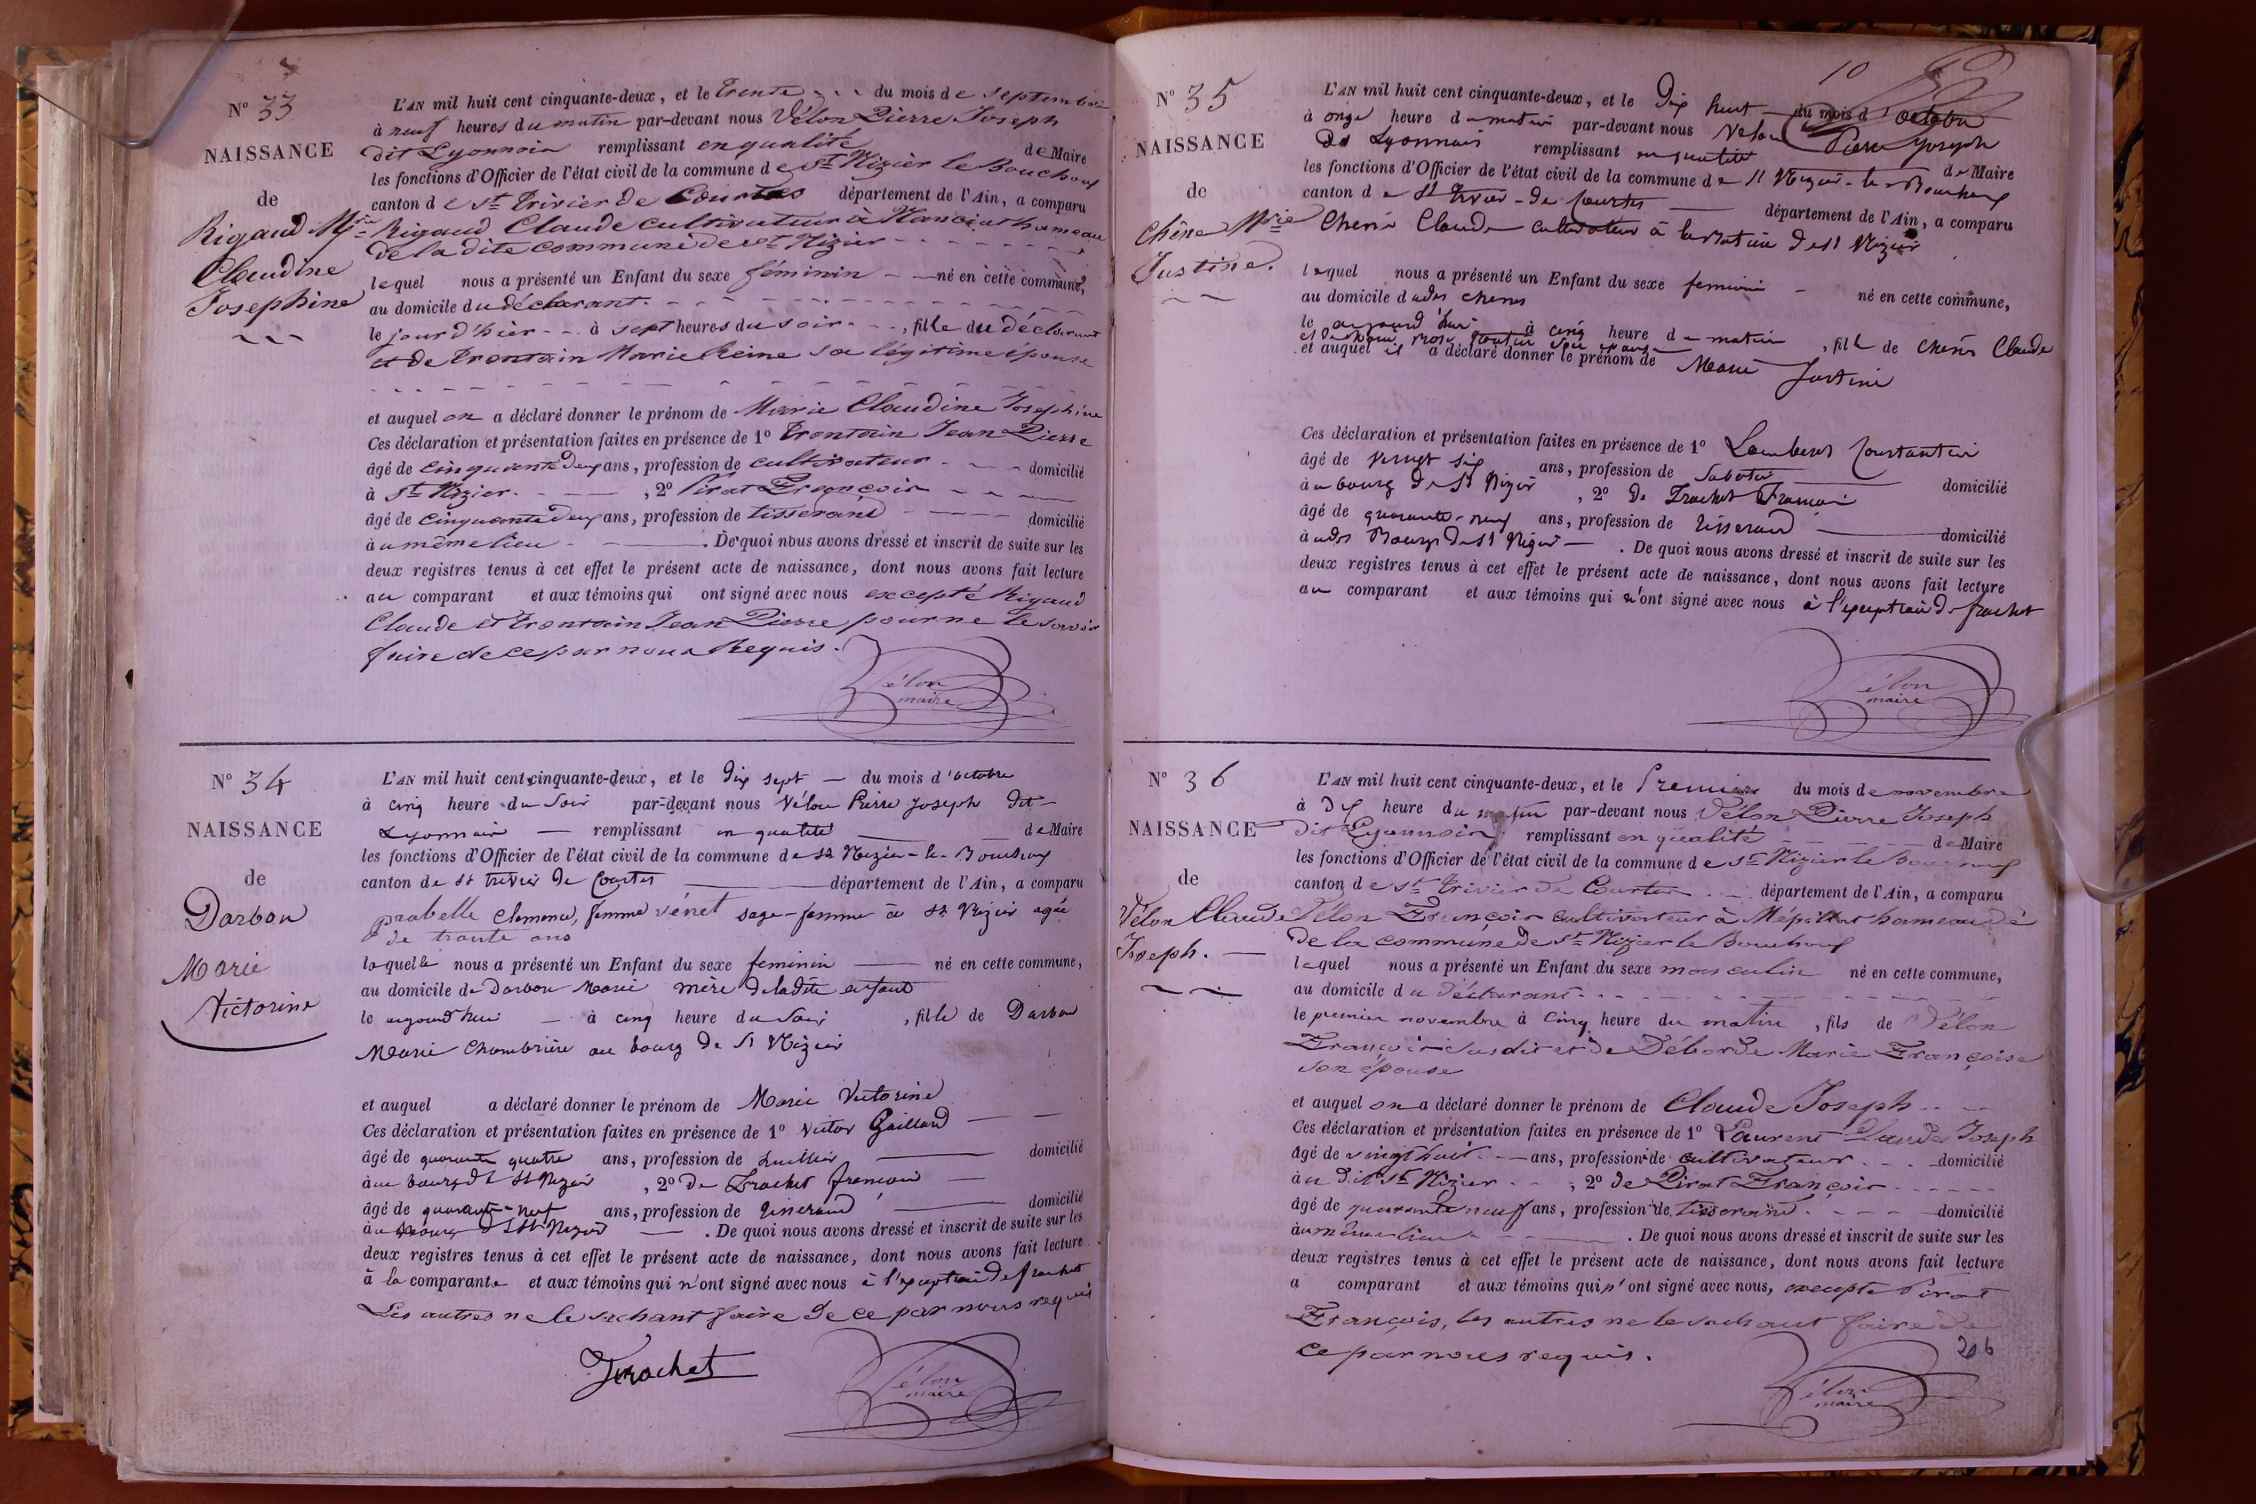 N° 33
NAISSANCE
de
Rigaud Mie
Claudine
Josephine
L'AN mil huit cent cinquante-deux, et le trente du mois de Septembre
à neuf heures du matin par-devant nous Vélon Pierre Joseph
dit Lyonnais remplissant en qualité de Maire
les fonctions d'Officier de l'état civil de la commune de St Nizier le Bouchoux
canton de St Trivier de Courtes département de l'Ain, a comparu
Rigaud Claude cultivateur à hameau
de la dite commune de St Nizier
lequel nous a présenté un Enfant du sexe féminin né en cette commune,
au domicile du déclarant.
le jour d'hier à sept heures du soir, fille du déclarant
et de Trontain Marie Reine sa légitime épouse
et auquel on a déclaré donner le prénom de Marie Claudine Josephine
Ces déclaration et présentation faites en présence de 1° Trontain Jean Pierre
âgé de cinquante deux ans, profession de cultivateur domicilié
à St Nizier. , 2° Pirat François
âgé de cinquante deux ans, profession de tisserand domicilié
à u même lieu . De quoi nous avons dressé et inscrit de suite sur les
deux registres tenus à cet effet le présent acte de naissance, dont nous avons fait lecture
au comparant et aux témoins qui ont signé avec nous excepté Rigaud
Claude et Trontain Jean Pierre pour ne le savoir
faire de ce par nous Requis.
Vélon
maire
N° 34
NAISSANCE
de
Darbon
Marie
Victorine
L'AN mil huit cent cinquante-deux, et le dix sept du mois d'octobre
à cinq heure du soir par-devant nous Vélon Pierre Joseph dit
Lyonnais remplissant en qualité de Maire
les fonctions d'Officier de l'état civil de la commune de St Nizier-le-Bouchoux
canton de St trivier de Courtes département de l'Ain, a comparu
Clemence, femme sage-femme à St Nizier agée
de trante ans
laquelle nous a présenté un Enfant du sexe feminin né en cette commune,
au domicile de Darbon Marie mere de ladite enfant
le aujourd'hui à cinq heure du soir, fille de Darbon
Marie Chambrière au bourg de St Nizier
et auquel a déclaré donner le prénom de Marie Victorine
Ces déclaration et présentation faites en présence de 1° Victor Gaillard
âgé de quarante quatre ans, profession de domicilié
à au bourg de St Nizier , 2° de Frachet françois
âgé de quarante-neuf ans, profession de tisserand domicilié
à au bourg de St Nizier . De quoi nous avons dressé et inscrit de suite sur les
deux registres tenus à cet effet le présent acte de naissance, dont nous avons fait lecture
à la comparante et aux témoins qui n'ont signé avec nous à l'exception de frachet
Les autres ne le sachant faire de ce par nous requis
Frachet
Vélon
maire
10
N° 35
NAISSANCE
de
Chêne Mrie
Justine.
L'AN mil huit cent cinquante-deux, et le dix huit du mois d'octobre
à onze heure du matin par-devant nous Vélon Pierre Joseph
dit Lyonnais remplissant en qualité de Maire
les fonctions d'Officier de l'état civil de la commune de St Nizier-le-Bouchoux
canton de St trivier-de Courtes département de l'Ain, a comparu
Chêne Claude cultivateur à de St Nizier
lequel nous a présenté un Enfant du sexe feminin né en cette commune,
au domicile dudit chene
le aujourd'hui à cinq heure de matin, fille de chene Claude
et de rose son épouse
et auquel il a déclaré donner le prénom de Marie Justine
Ces déclaration et présentation faites en présence de 1° Lambert Constantin
âgé de vingt six ans, profession de Sabotier domicilié
à au bourg de St Nizier , 2° de Frachet François
âgé de quarante-neuf ans, profession de tisserand domicilié
à udit Bourg de St Nizier . De quoi nous avons dressé et inscrit de suite sur les
deux registres tenus à cet effet le présent acte de naissance, dont nous avons fait lecture
au comparant et aux témoins qui n'ont signé avec nous à l'exception de frachet
Vélon
maire
N° 36
NAISSANCE
de
Vélon Claude
Joseph.
L'AN mil huit cent cinquante-deux, et le Premier du mois de novembre
à dix heure du matin par-devant nous Vélon Pierre Joseph
dit Lyonnais remplissant en qualité de Maire
les fonctions d'Officier de l'état civil de la commune de St Nizier le Bouchoux
canton de St Trivier de Courtes département de l'Ain, a comparu
Vélon François cultivateur à hameau de
de la commune de St Nizier le Bouchoux
lequel nous a présenté un Enfant du sexe masculin né en cette commune,
au domicile du déclarant
le premier novembre à cinq heure du matin, fils de Vélon
François susdit et de Déborde Marie Françoise
son épouse
et auquel on a déclaré donner le prénom de Claude Joseph
Ces déclaration et présentation faites en présence de 1° Laurent Claude Joseph
âgé de vingt huit ans, profession de cultivateur domicilié
à u dit St Nizier , 2° de Pirat François
âgé de quarante neuf ans, profession de tisserand domicilié
à u même lieu . De quoi nous avons dressé et inscrit de suite sur les
deux registres tenus à cet effet le présent acte de naissance, dont nous avons fait lecture
a comparant et aux témoins qui n'ont signé avec nous, excepté Pirat
François, les autres ne le sachant faire de
ce par nous requis.
206
Vélon
maire